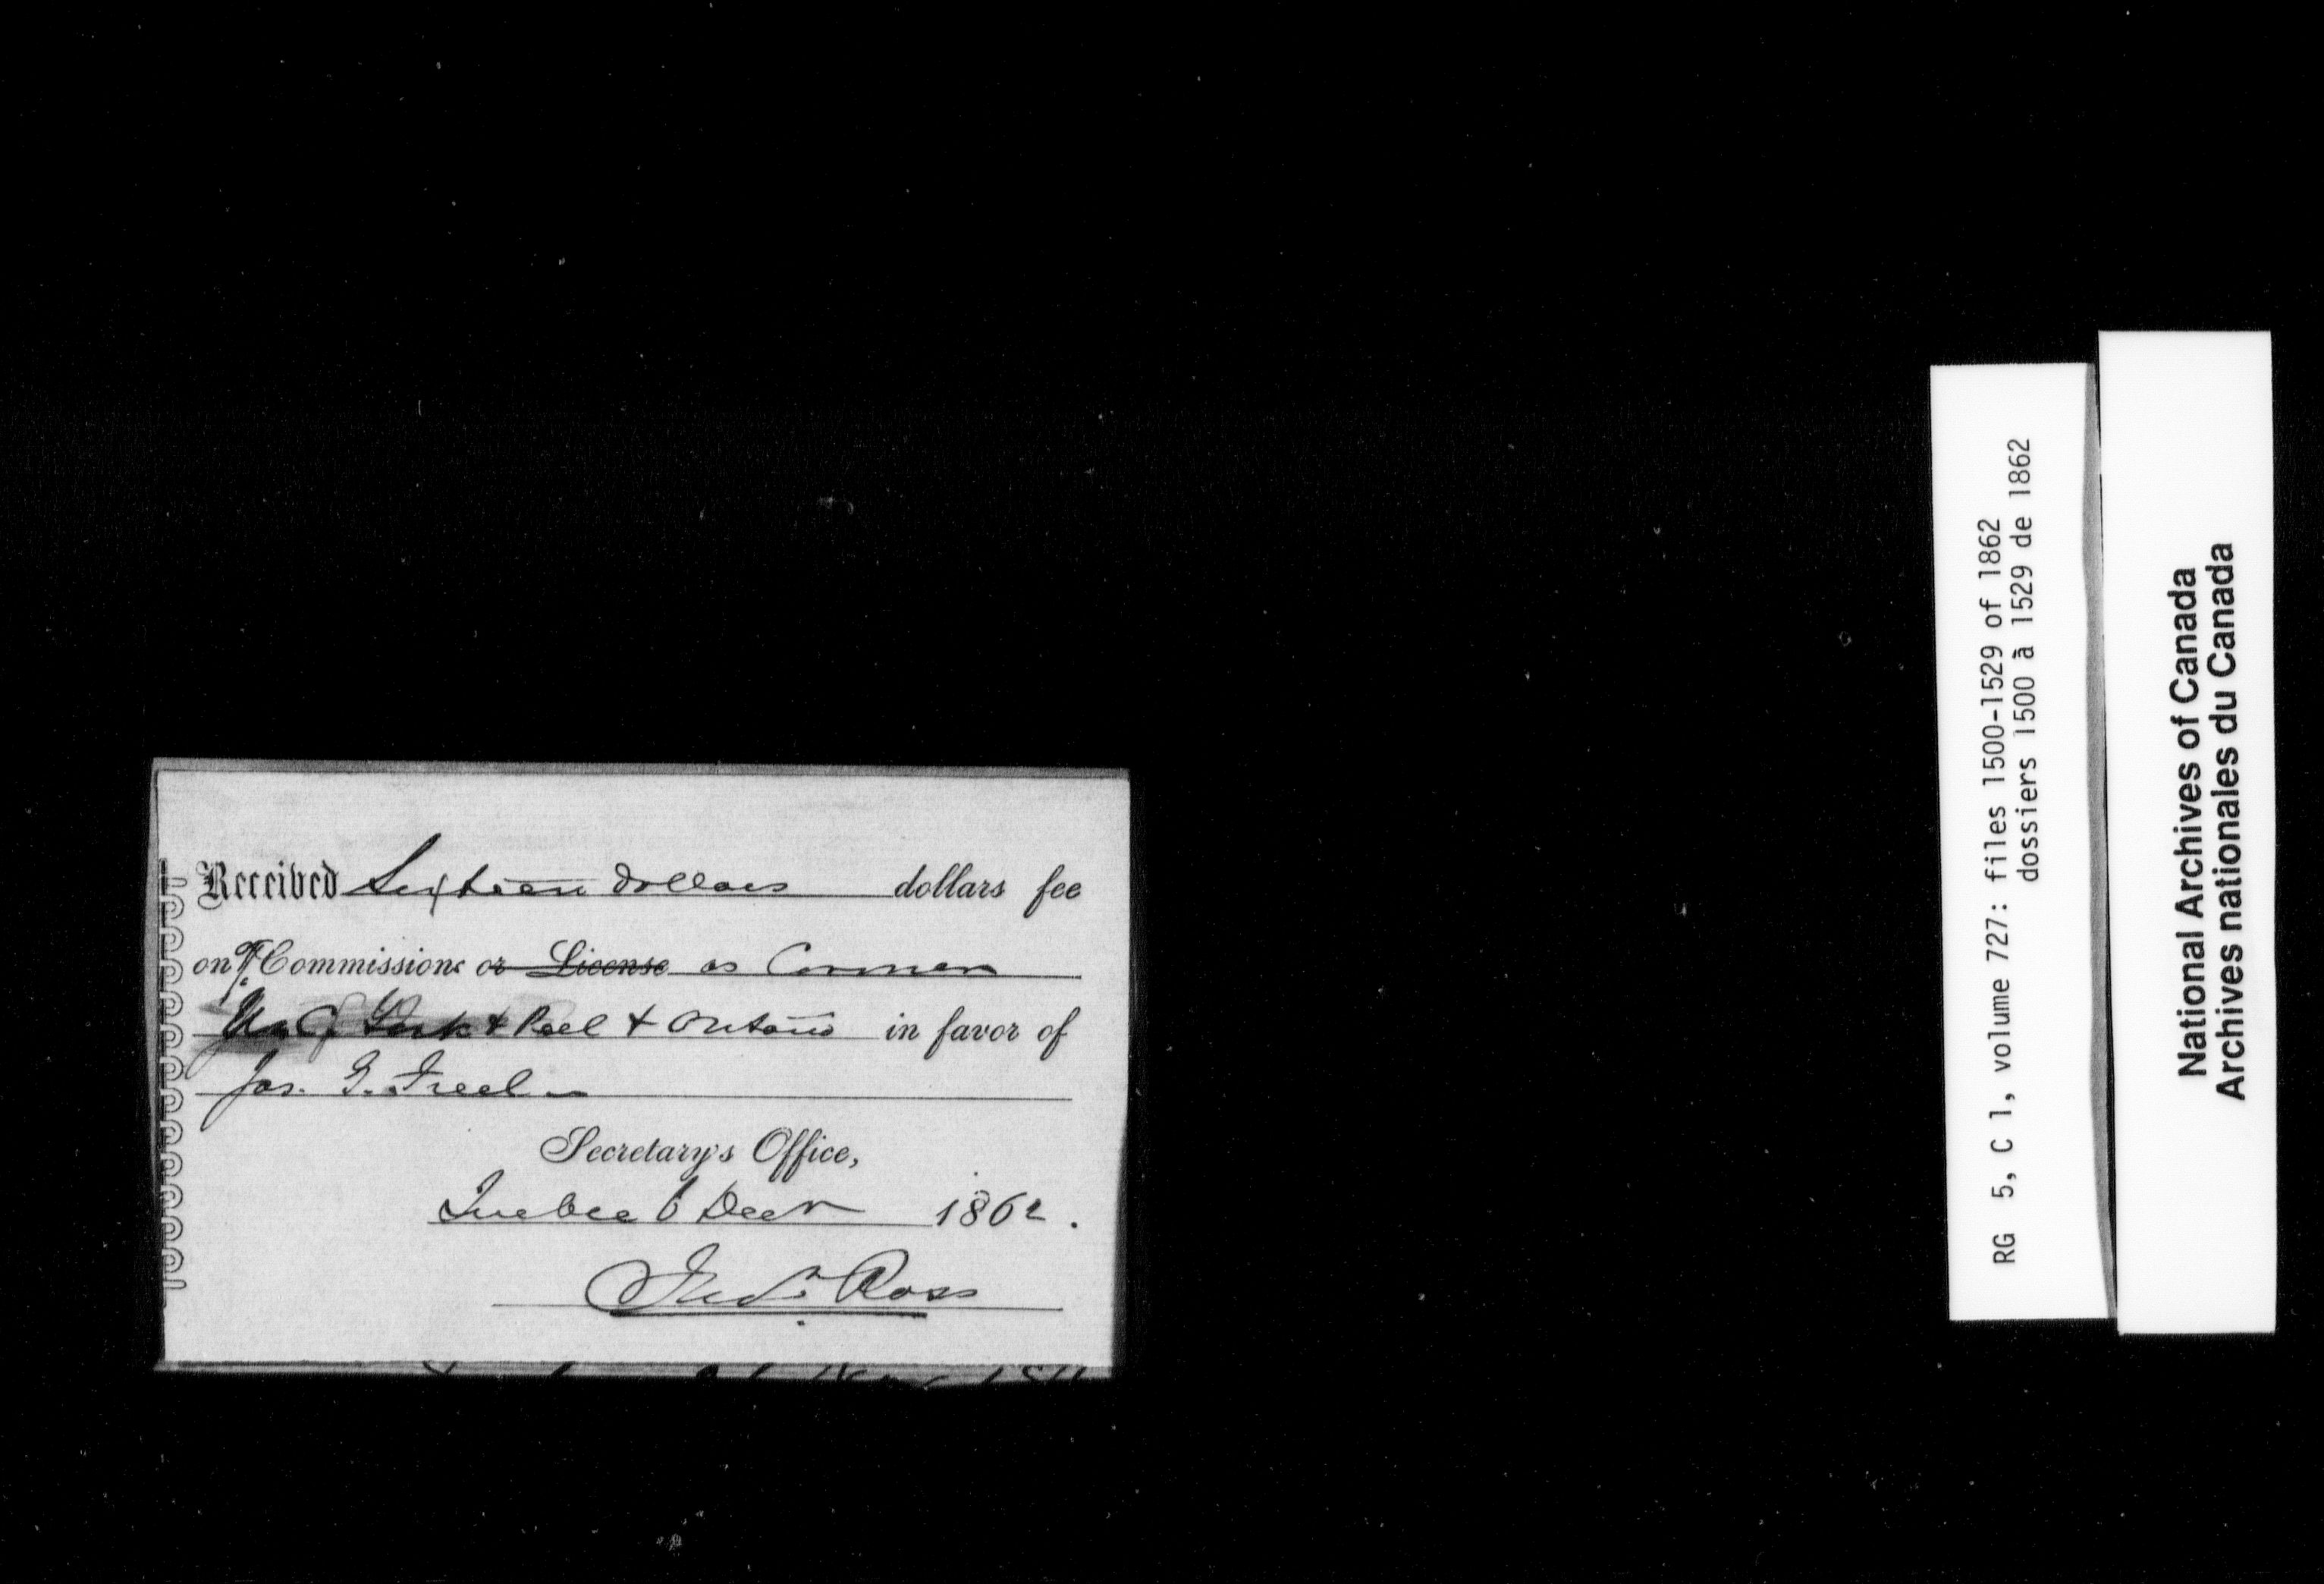 Received Sixteen dollars dollars fee
on Commissions or License as Coroner
York & Peel & Ontario in favor of
Jos. G. Freel
Secretary's Office,
Quebec 6 Decr 1862.
Ross
RG 5, C 1, volume 727: files 1500-1529 of 1862
dossiers 1500 à 1529 de 1862
National Archives of Canada
Archives nationales du Canada